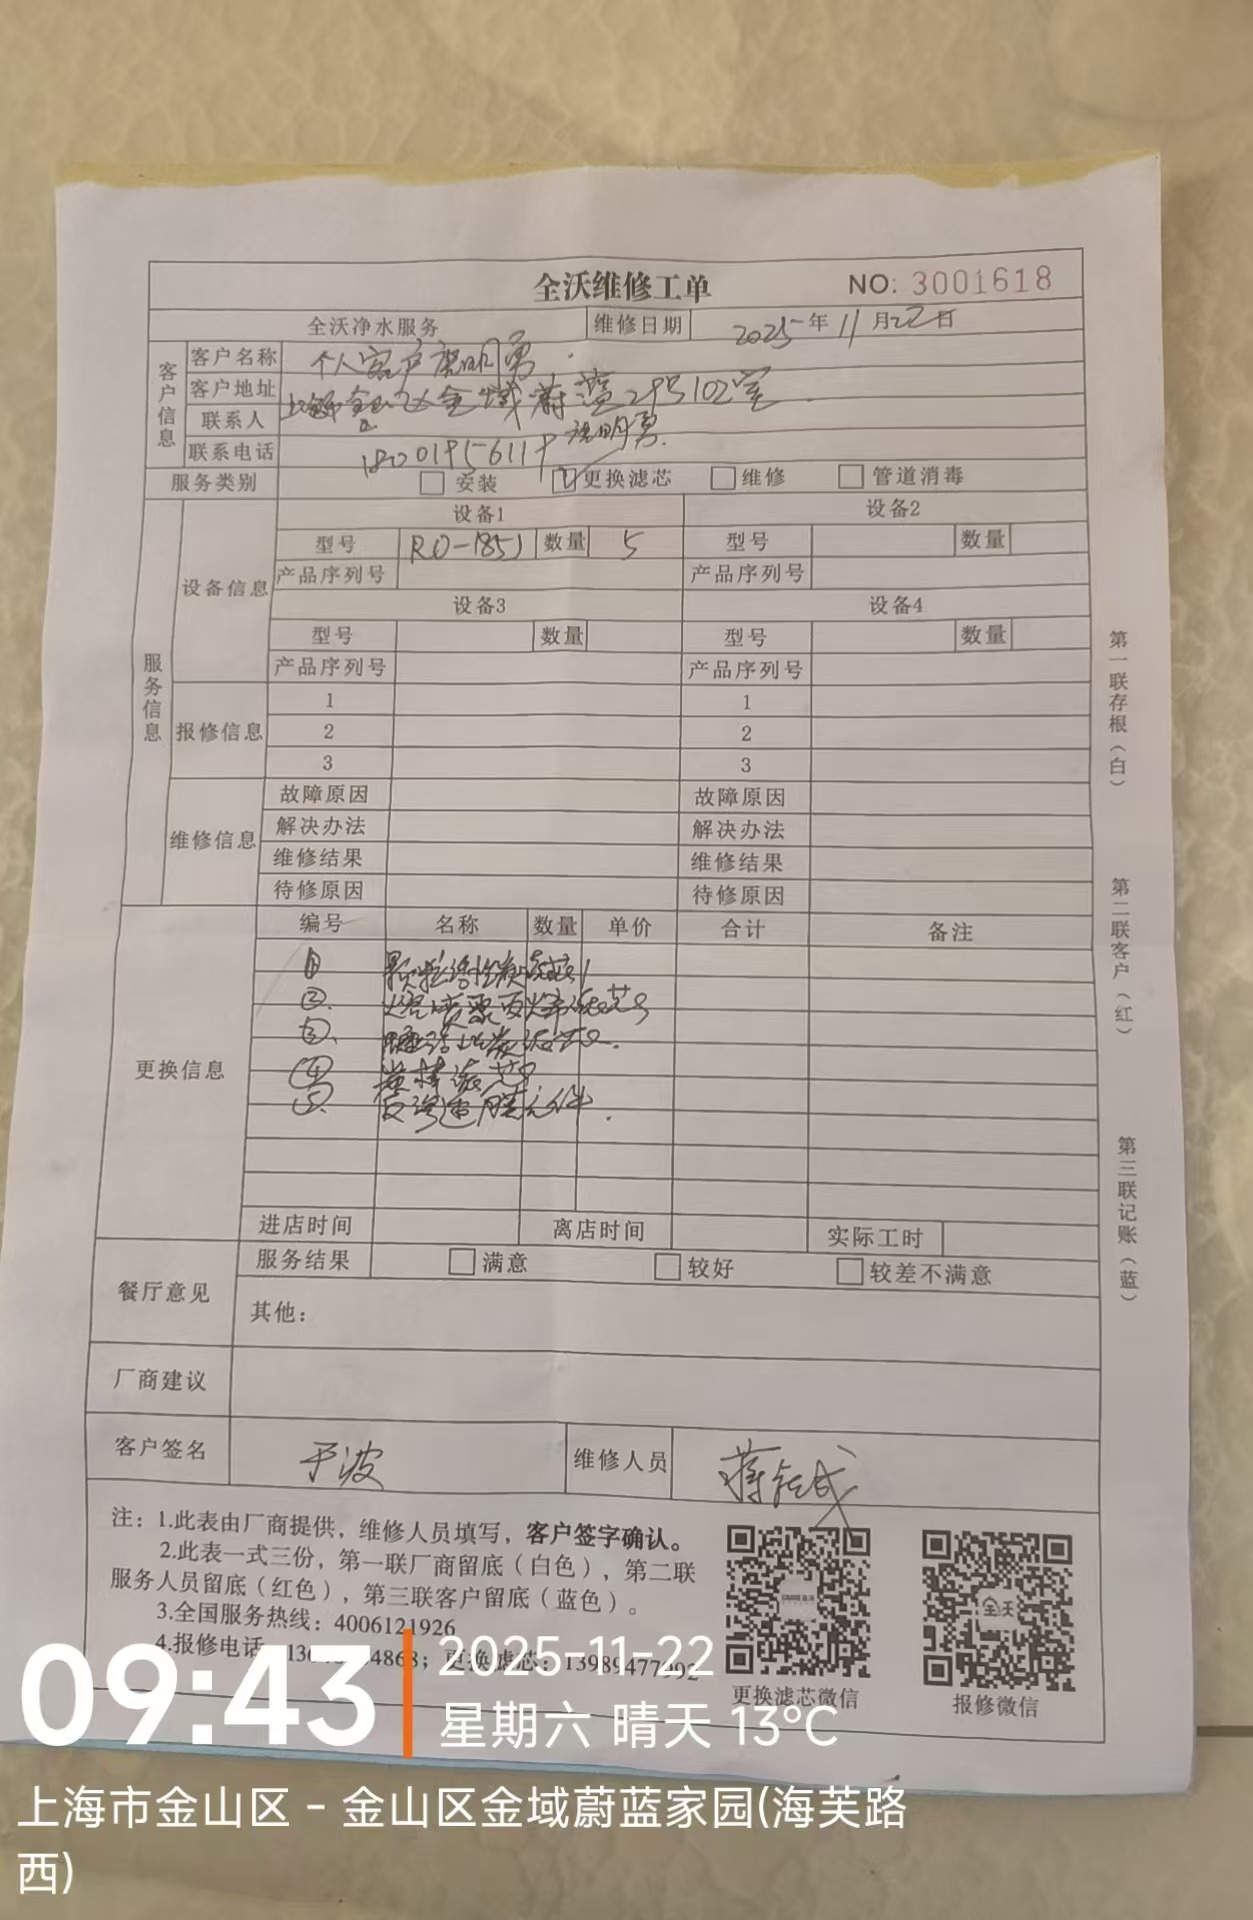 全沃维修工单 NO: 3001618
全沃净水服务 维修日期 2025年11月22日
客户信息
客户名称 个人客户 明勇
客户地址 上海市金山区金域蔚蓝29号102室
联系人 明勇
联系电话
服务类别 安装 更换滤芯 维修 管道消毒
服务信息
设备信息
设备1 设备2
型号 RO-185J 数量 5 型号 数量
产品序列号 产品序列号
设备3 设备4
型号 数量 型号 数量
产品序列号 产品序列号
报修信息
1 1
2 2
3 3
维修信息
故障原因 故障原因
解决办法 解决办法
维修结果 维修结果
待修原因 待修原因
更换信息
编号 名称 数量 单价 合计 备注
① 颗粒活性炭滤芯 1
② 熔喷聚丙烯滤芯
③、 活性炭滤芯.
④ 滤芯
⑤. 反渗透膜元件.
进店时间 离店时间 实际工时
餐厅意见
服务结果 满意 较好 较差不满意
其他：
厂商建议
客户签名 于波 维修人员 蒋 成
注：1.此表由厂商提供，维修人员填写，客户签字确认。
2.此表一式三份，第一联厂商留底（白色），第二联
服务人员留底（红色），第三联客户留底（蓝色）。
3.全国服务热线：4006121926
4.报修电话 4868；更换滤芯：13989477992
更换滤芯微信 报修微信
第一联存根（白）
第二联客户（红）
第三联记账（蓝）
09:43
2025-11-22
星期六 晴天 13°C
上海市金山区 - 金山区金域蔚蓝家园(海芙路
西)